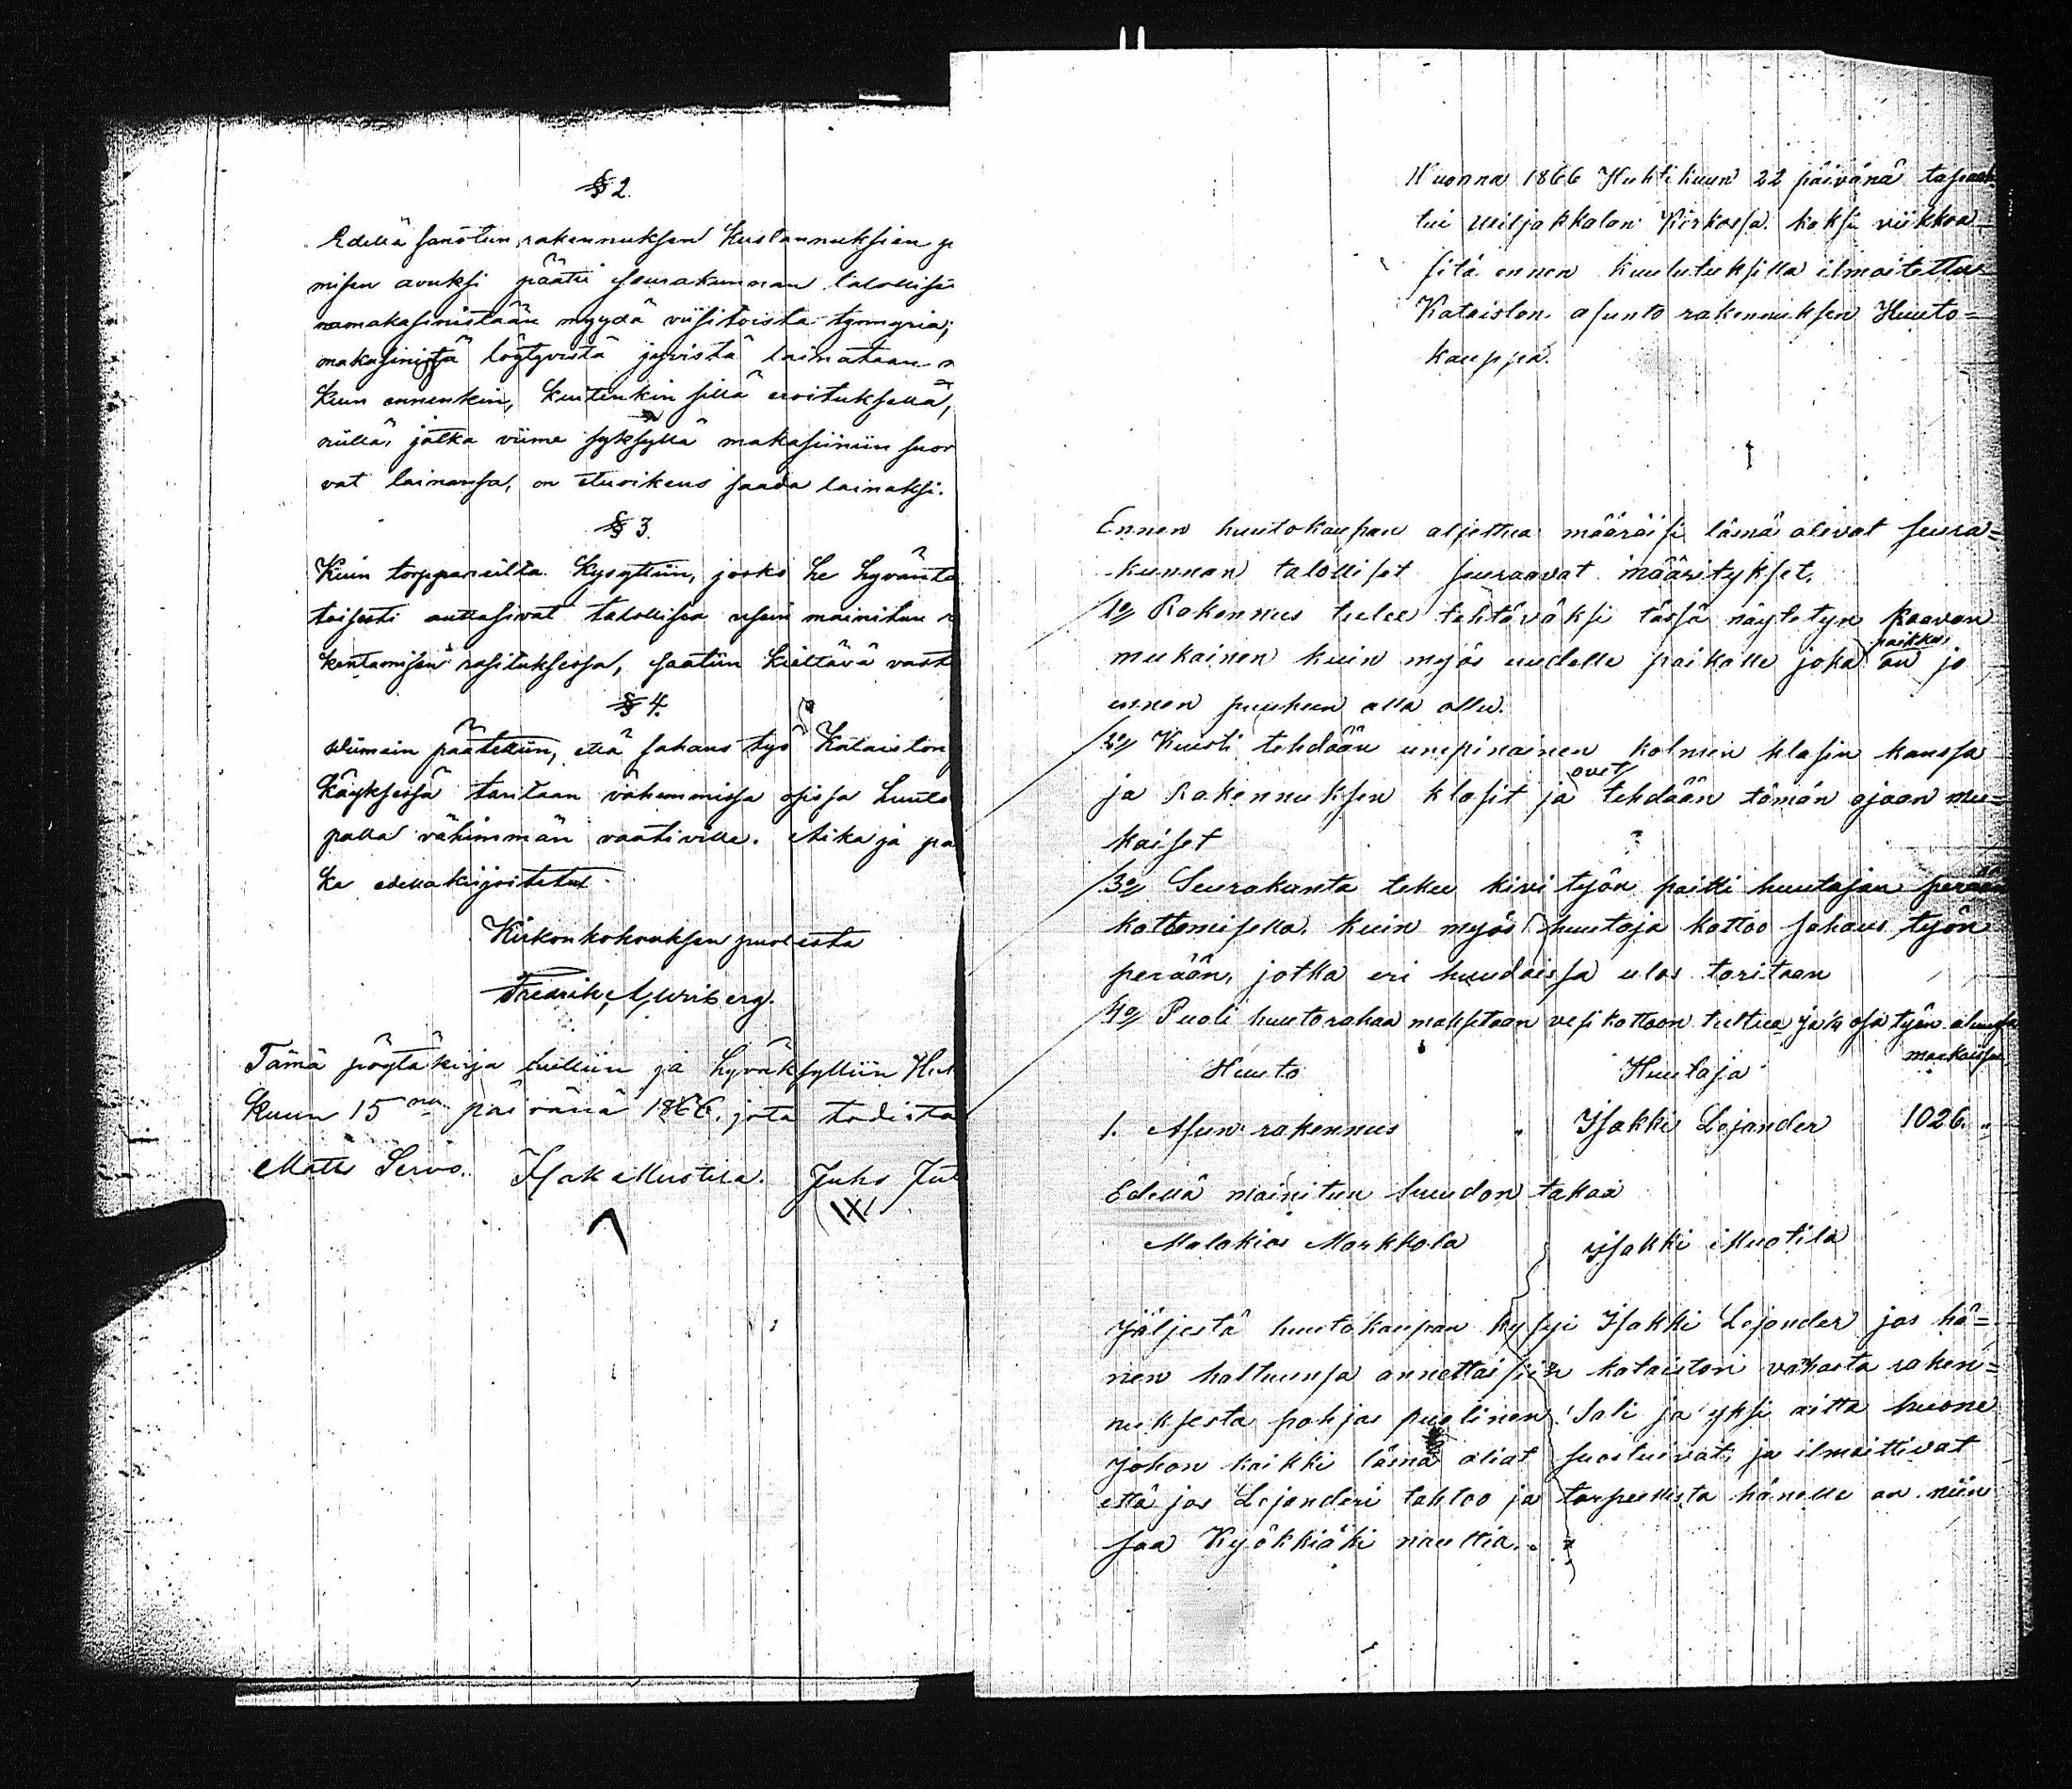 § 2.
Edellä sanotun rakennuksen kustannuksien
misen avuksi päätti seurakunnan talollise
namakasinistään myydä viisitoista tynnyriä;
makasinista löytyvistä jyvistä lainataan
kuin ennenkin, kuitenkin sillä eroituksella,
niillä, jotka viime syksyllä makasiiniin suor
vat lainansa, on etuoikeus saada lainaksi.
§ 3.
Kuin torppareilta kysyttiin, josko he hyvänta
toisesti auttasivat talollisia usein mainitun
kentamisen rasituksessa, saatiin kieltävä vast
§ 4.
Viimein päätettiin, että sahaus työ Kataiston
käyksessä taritaan vähemmissä osissa huuto
palla vähimmän vaativille. Aika ja pa
ka edelläkirjoitetut.
Kirkonkokouksen puolesta
Fredrik
Tämä pöytäkirja luettiin ja hyväksyttiin Huh
kuun 15 na päivänä 1866. jota todista
Matti Servo. Isak Mustila. Juho
Vuonna 1866 Huhtikuun 22 päivänä tapaht
tui Viljakkalan Kirkossa. kaksi viikkoa
sitä ennen kuulutuksilla ilmoitettu
Kataiston asunto rakennuksen Huuto=
kauppa.
Ennen huutokaupan aljettua määräisi läsnä olevat seura=
kunnan talolliset seuraavat määritykset.
1o/ Rakennus tulee tehtäväksi tässä näytetyn kaavan
paikka
mukainen kuin myös uudelle paikalle joka on jo
ennen puuheen alla ollu.
2o/ Kuisti tehdään umpinainen kolmen klasin kanssa
ovet
ja Rakennuksen klasit ja tehdään tämän ajaan mu=
kaiset
3o/ Seurakunta tekee kivi työn paitti huutajan perään
kattomisella. kuin myös huutaja kattoo sahaus työn
perään, jotka eri huudoissa ulos taritaan
4o/ Puoli huutorahaa maksetaan vesi kattoon tultua ja ½ osa työn alussa
Huuto Huutaja markaissa
1. Asun rakennus " Isakki Lejander 1026. "
Edellä mainitun huudon takaa
Malakias Markkola Isakki Mustila
Jäljestä huutokaupan kysyi Isakki Lejander jos hä=
nen haltuunsa annettaisiin kataiston vanhasta raken=
nuksesta pohjas puolinen Sali ja yksi aitta huone
johon kaikki läsnä oliat suostuivat, ja ilmoittivat
että jos Lejanderi tahtoo ja tarpeellista hänelle on niin
saa Kyökkiäki nauttia.